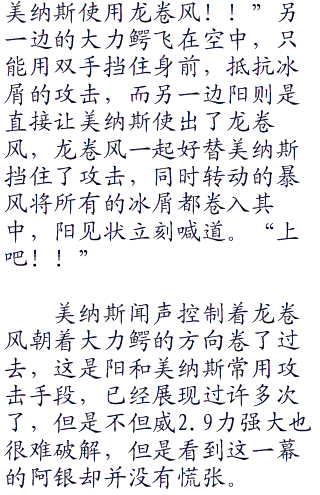 美纳斯使用龙卷风！！”另
一边的大力鳄飞在空中，只
能用双手挡住身前，抵抗冰
屑的攻击，而另一边阳则是
直接让美纳斯使出了龙卷
风，龙卷风一起好替美纳斯
挡住了攻击，同时转动的暴
风将所有的冰屑都卷入其
中，阳见状立刻喊道。“上
吧！！”
美纳斯闻声控制着龙卷
风朝着大力鳄的方向卷了过
去，这是阳和美纳斯常用攻
击手段，已经展现过许多次
了，但是不但威2.9力强大也
很难破解，但是看到这一幕
的阿银却并没有慌张。